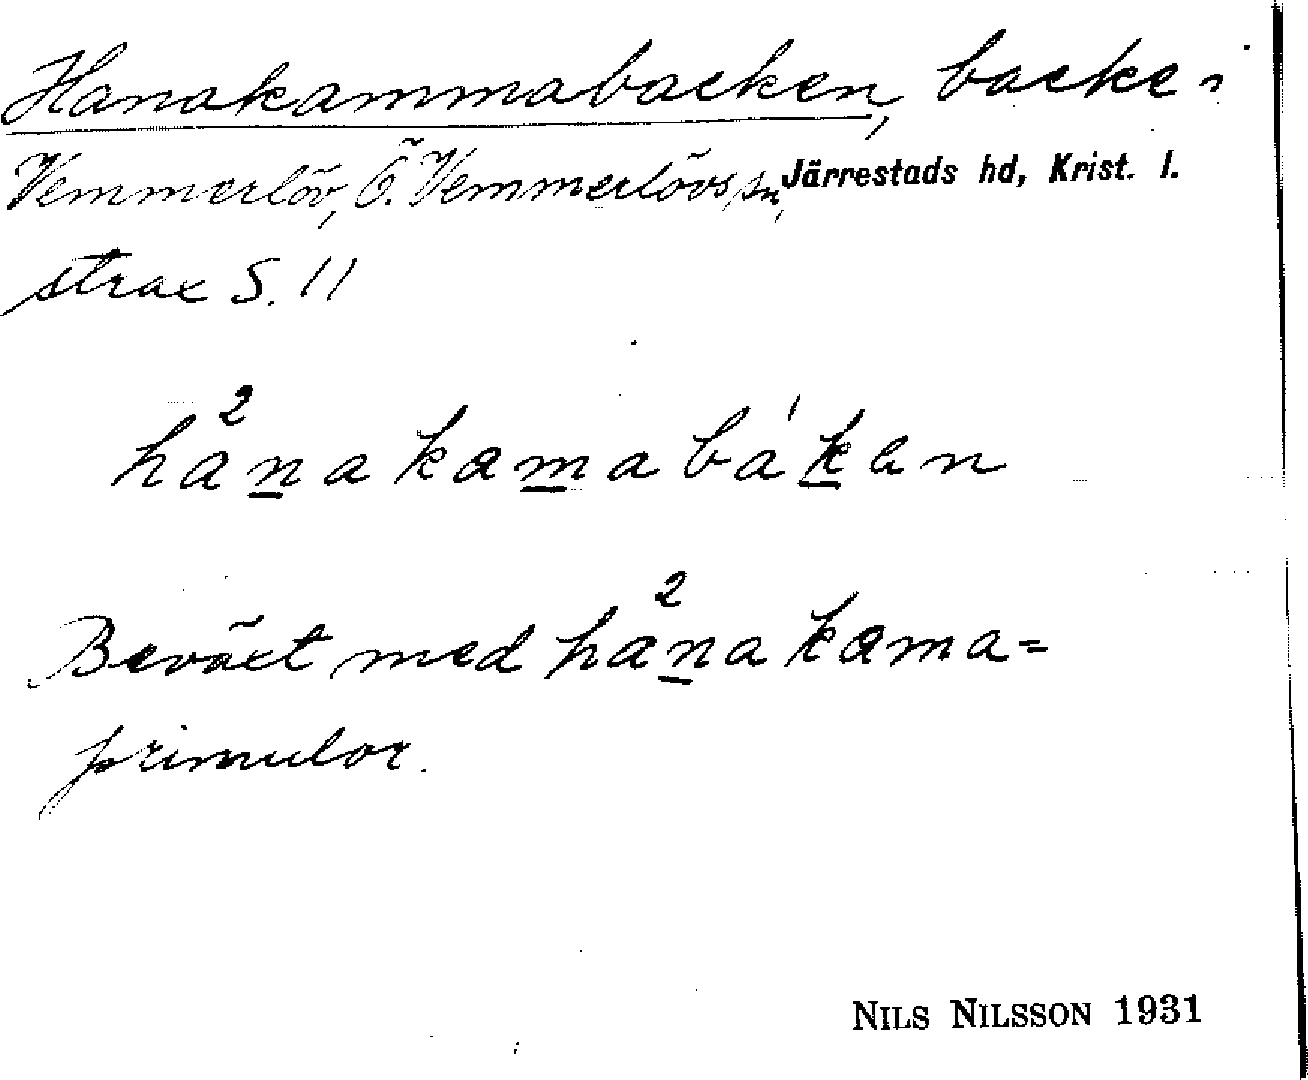 Hanakammabacken, backe i
Vemmerlöv, Ö. Vemmerlövs sn, Järrestads hd, Krist. l.
strax S. 11
ha²nakamaba'ken
Beväxt med ha²nakama=
primulor.
NILS NILSSON 1931